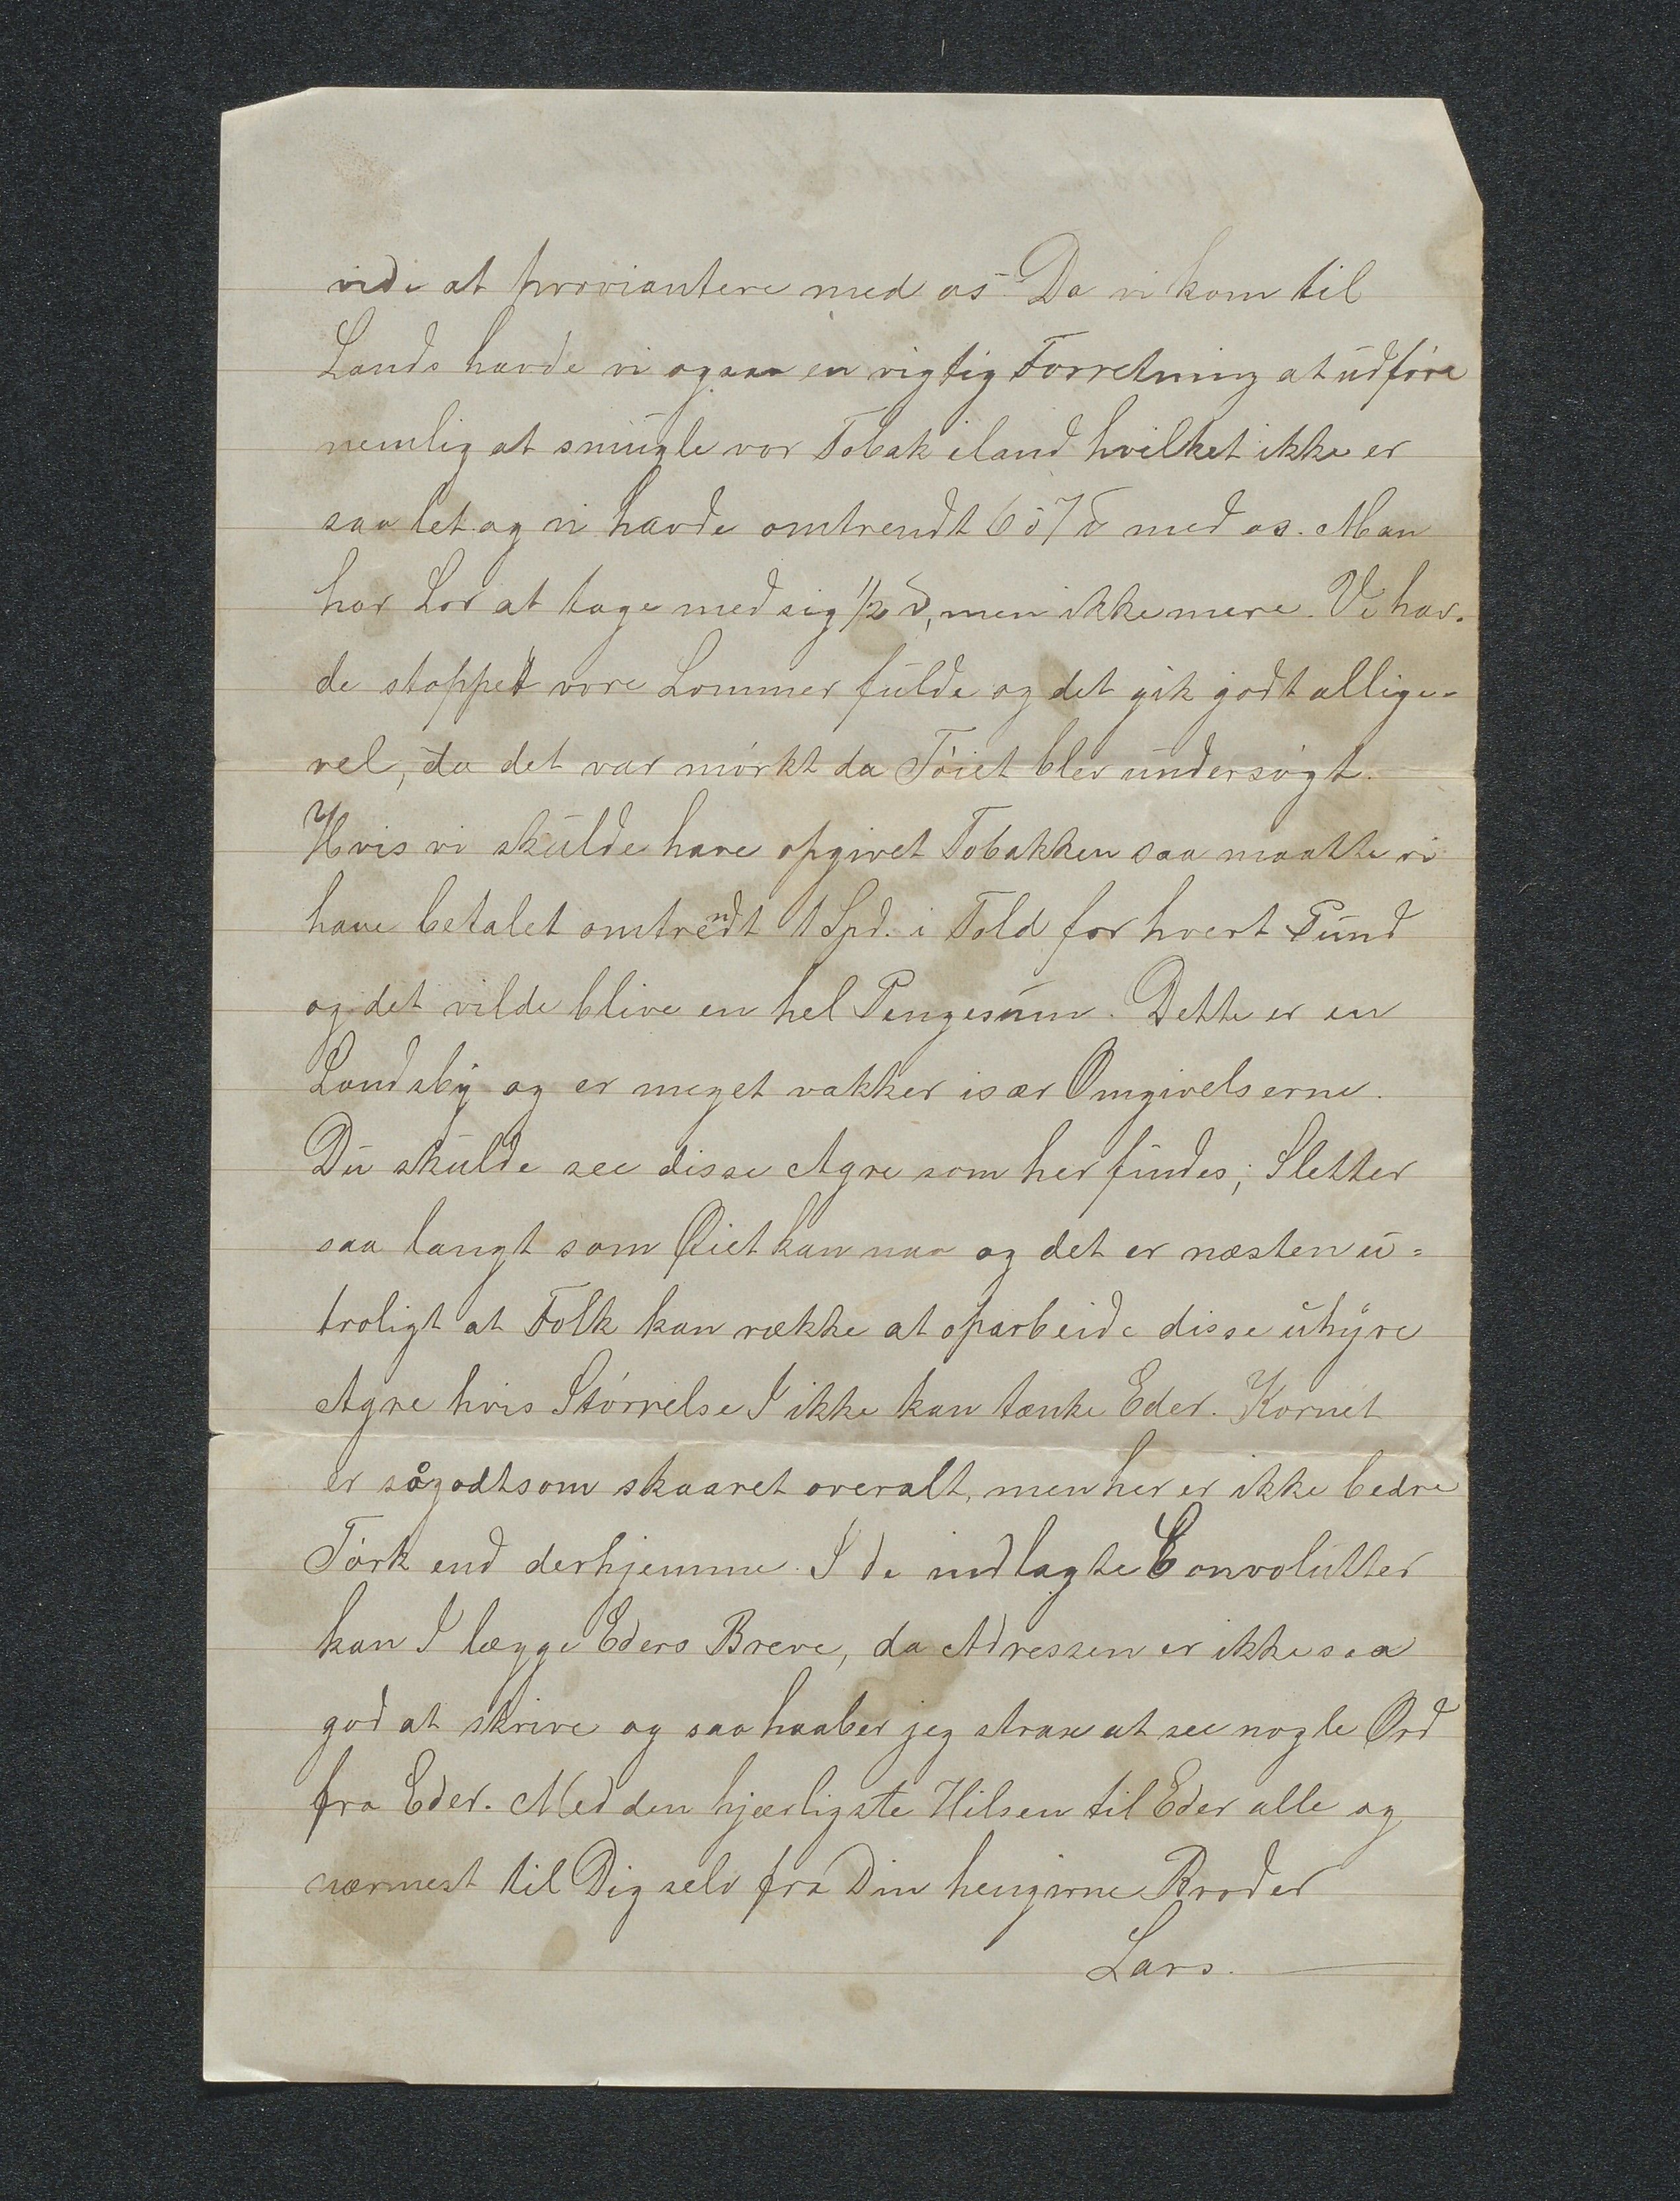 vidi at proviantere med os. Da vi kom til
Lands havde vi ogsaa en vigtig Forretning at udføre
nemlig at smugle vor Tobak iland hvilket ikke er
saa let og vi havde omtrendt 6 à 7 ℔ med os. Man
har Lov at tage med sig 1/2 ℔, men ikke mere. Vi hav-
de stoppet vore Lommer fulde og det gik godt allige-
vel, da det var mørkt da Tøiet blev undersøgt.
Hvis vi skulde have opgivet Tobakken saa maatte vi
have betalet omtrendt 1 Spd. i Told for hvert Pund
og det vilde blive en hel Pengesum. Dette er en
Landsby og er meget vakker især Omgivelserne.
Du skulde see disse Agre som her findes; Sletter
saa langt som Øiet kan naa og det er næsten u-
troligt at Folk kan række at oparbeide disse uhyre
Agre hvis Størrelse I ikke kan tænke Eder. Kornet
er sågodtsom skaaret overalt, men her er ikke bedre
Tørk end derhjemme. I de indlagte Convolutter
kan I lægge Eders Breve, da Adressen er ikke saa
god at skrive og saa haaber jeg strax at see nogle Ord
fra Eder. Med den hjærligste Hilsen til Eder alle og
nærmest til Dig selv fra Din hengivne Broder
Lars.